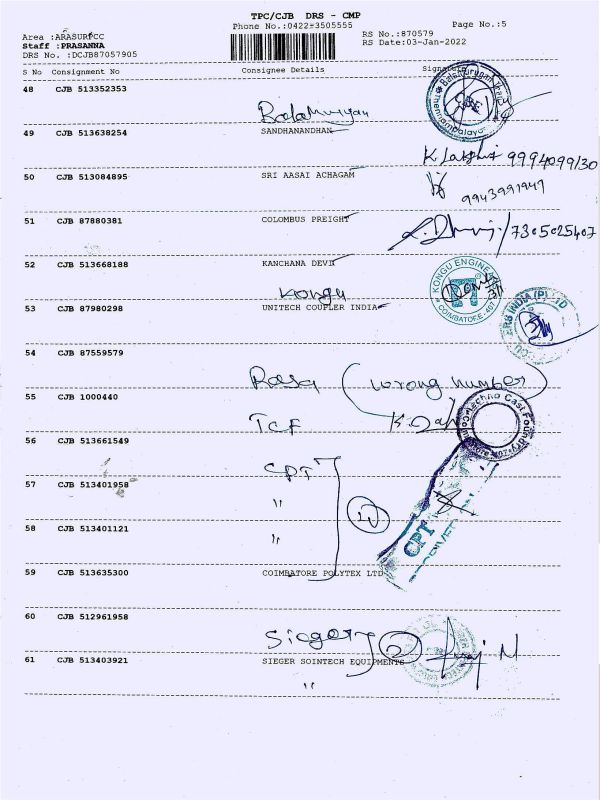 TPC/CJB DRS - CMP
Phone No.:0422-3505555
Page No.:5
Area :ARASURPCC
RS No.:870579
Staff :PRASANNA
RS Date:03-Jan-2022
DRS No. :DCJB87057905
S No Consignment No Consignee Details Signature
48 CJB 513352353
Balamurugan
49 CJB 513638254 SANDHANANDHAN
K. Lakshmi 9994099130
50 CJB 513084895 SRI AASAI ACHAGAM
9943991949
51 CJB 87880381 COLOMBUS FREIGHT
/7305025407
52 CJB 513668188 KANCHANA DEVI
Kongu
KONGU ENGINEE
COIMBATORE
53 CJB 87980298 UNITECH COUPLER INDIA
RS INDIA (P) LTD
54 CJB 87559579
Rasa (wrong number)
55 CJB 1000440
TCF
Techno Cast Foundry
56 CJB 513661549
CPT
57 CJB 513401958
"
CPT
58 CJB 513401121
"
59 CJB 513635300 COIMBATORE POLYTEX LTD
60 CJB 512961958
Sieger 2
61 CJB 513403921 SIEGER SOINTECH EQUIPMENTS
"